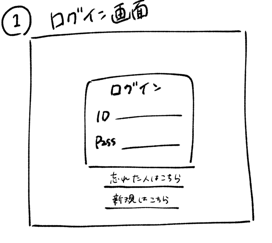 ① ログイン画面
ログイン
ID
Pass
忘れた人はこちら
新規はこちら